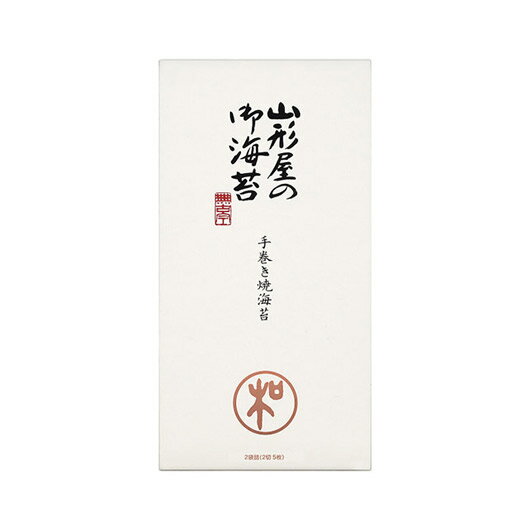 山形屋の
御海苔
手巻き焼海苔
和
2袋詰(2切 5枚)